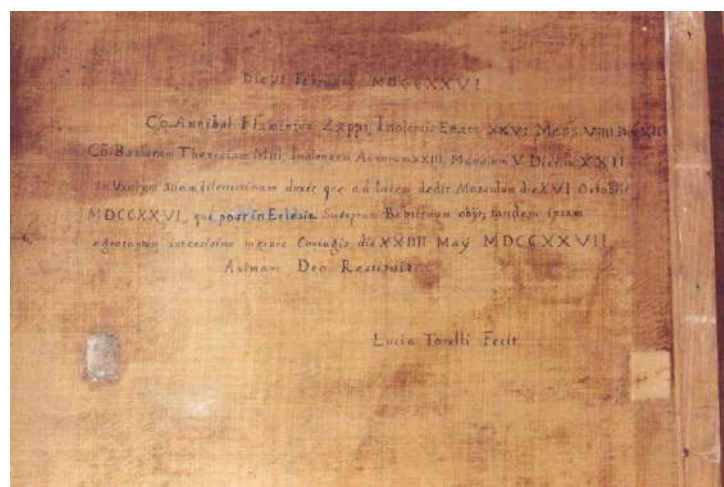 Die VI February MDCCXXVI
Co. Annibal Flaminius Zappi, Imolensis Etate XXVI Mens. VIIII
Co. Barbaram Theresiam Imolensem Annorum XXIII, Mensium V Dierum XXII
In Uxorem Suam dilectissimam duxit que ad lucem dedit Masculum die XVI Octobris
MDCCXXVI, qui post in Eclesia Baptismum obijt, tandem ipsam
egrotantem merore Coniugis die XXIIII Maÿ MDCCXXVII
Animam Deo Restituit
Lucia Torelli Fecit